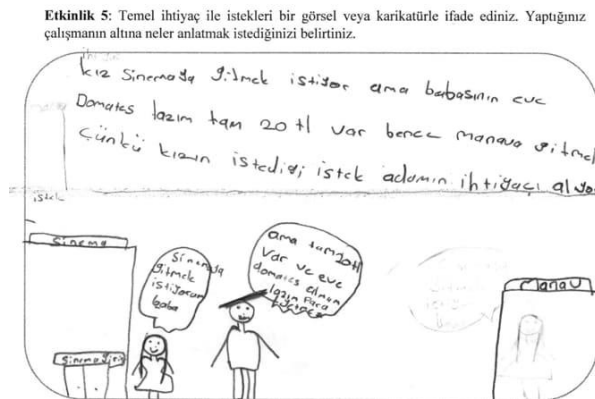 Etkinlik 5: Temel ihtiyaç ile istekleri bir görsel veya karikatürle ifade ediniz. Yaptığınız
çalışmanın altına neler anlatmak istediğinizi belirtiniz.
kız Sinemaya gitmek istiyor ama babasının eve
Domates lazım tam 20 tl var bence manava gitmel
Çünkü kızın istediği istek adamın ihtiyaçı alıyo
istek
Sinema
Sinemaya
gitmek
istiyorum
baba
ama tam 20 tl
var ve eve
domates almam
lazım Para
Manav